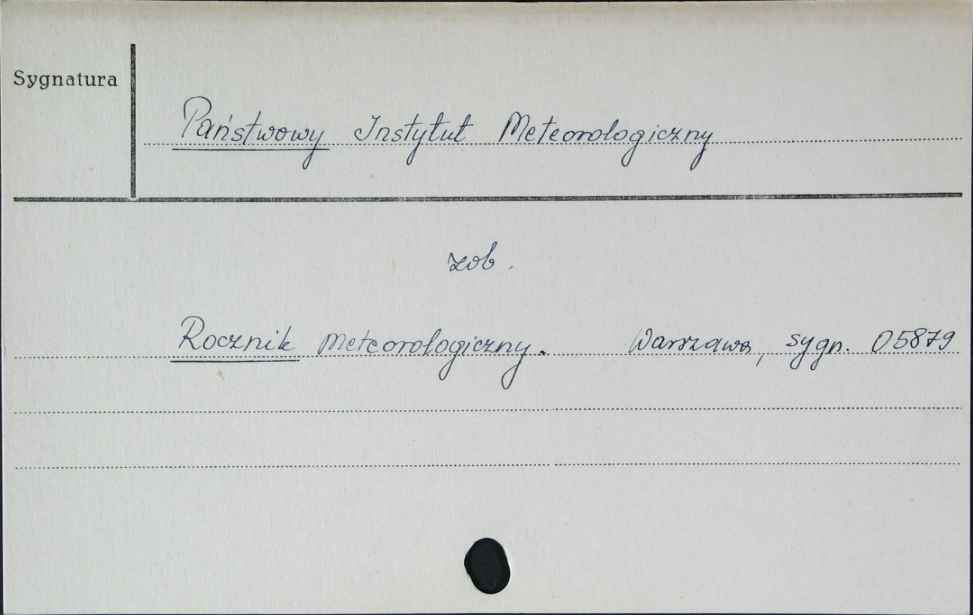 Sygnatura
Państwowy Instytut Meteorologiczny
zob.
Rocznik meteorologiczny. Warszawa, sygn. 05879